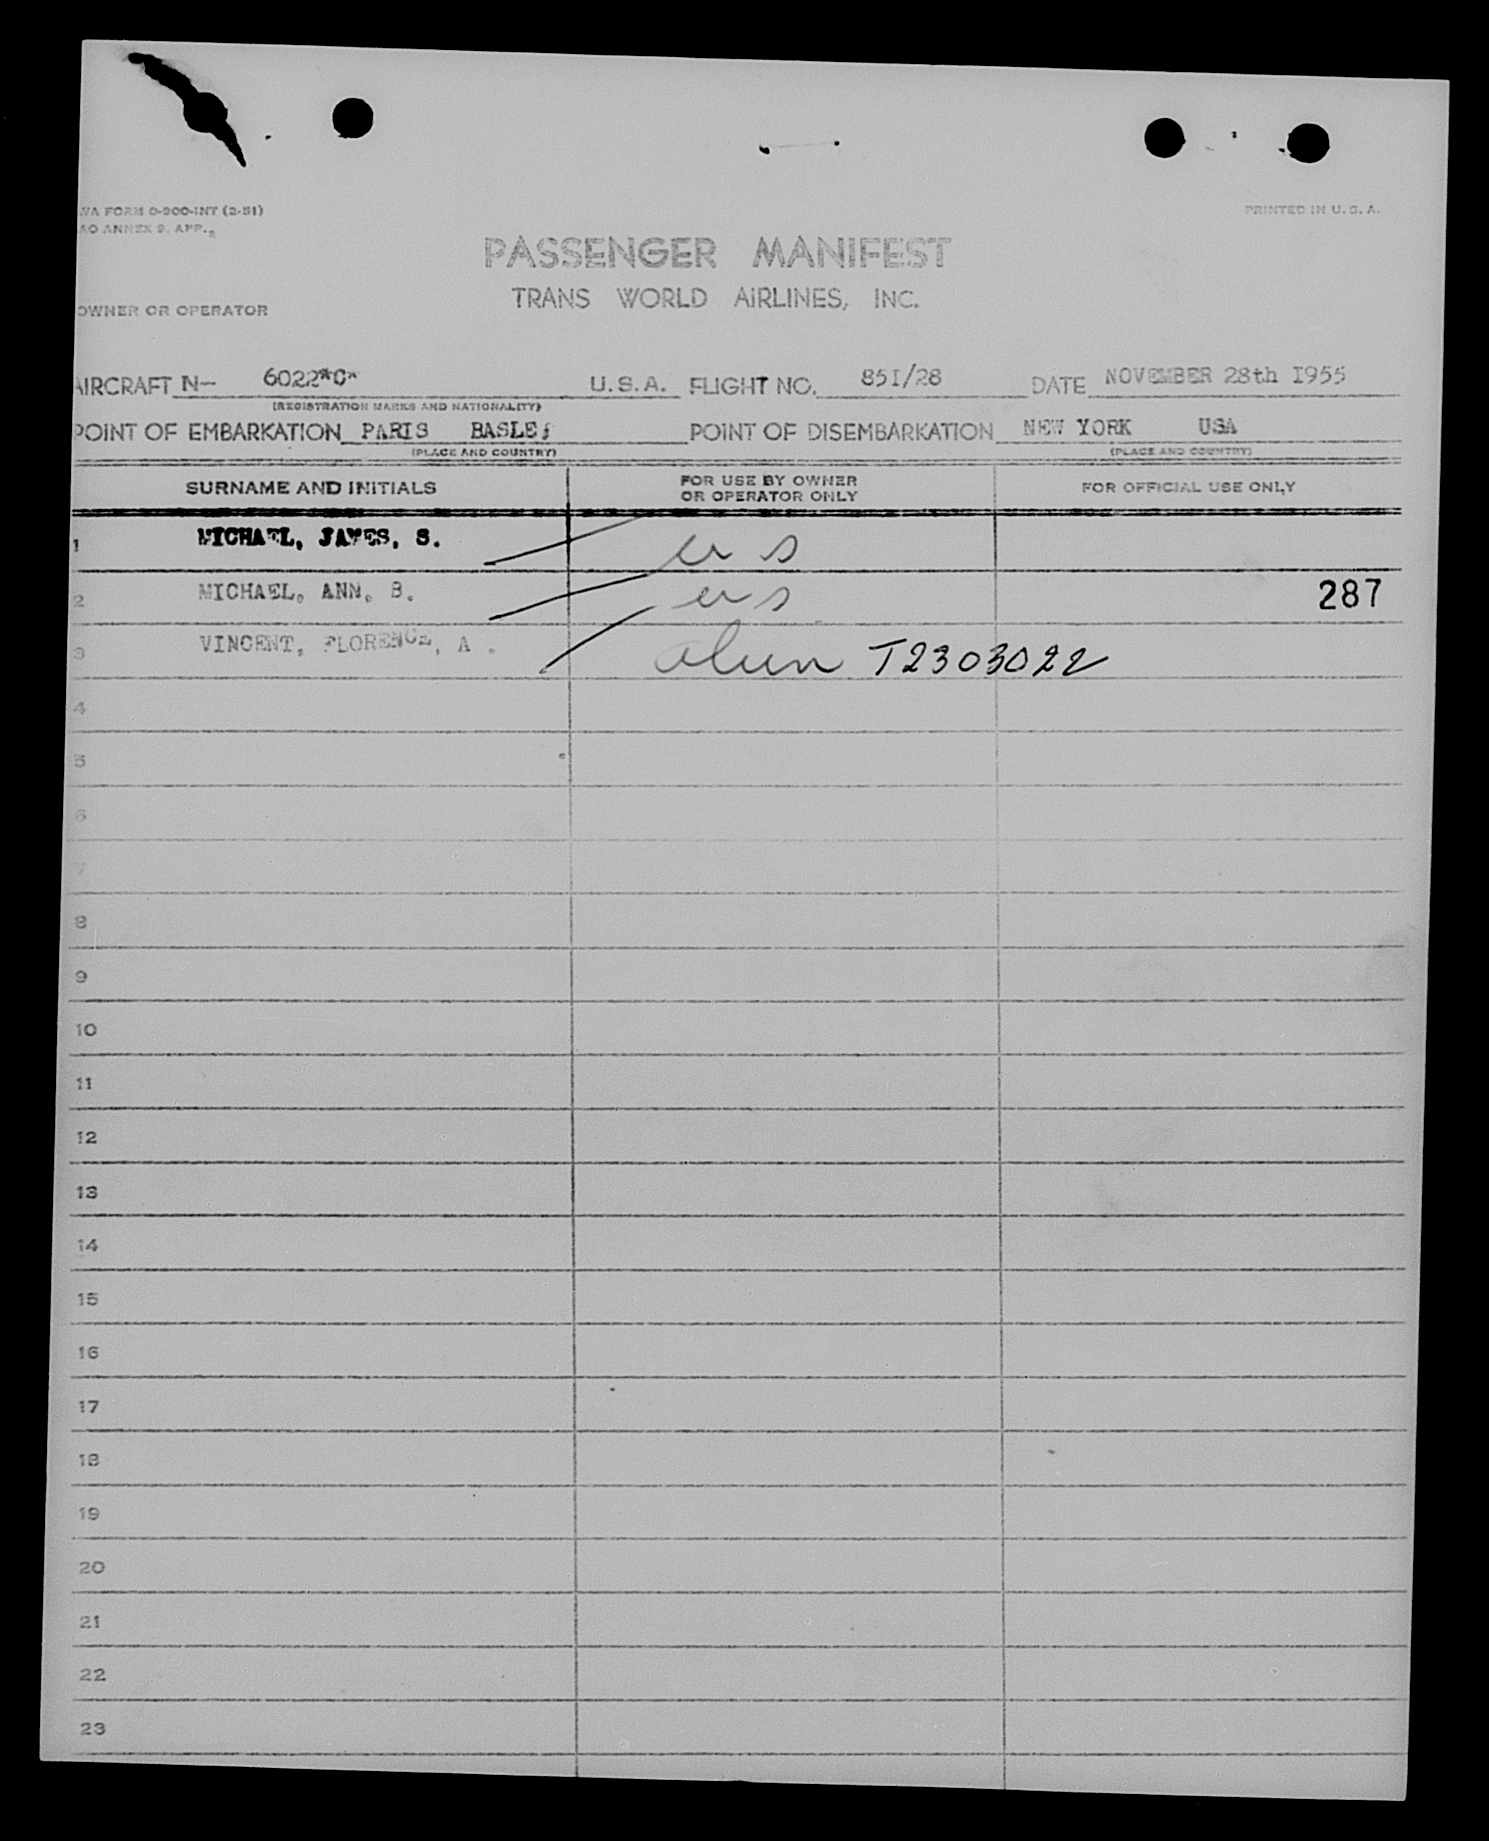 WA FORM O-900-INT (2-51)
PRINTED IN U. S. A.
AO ANNEX 9, APP. 2
PASSENGER MANIFEST
TRANS WORLD AIRLINES, INC.
OWNER OR OPERATOR
AIRCRAFT N- 6022"C" U.S.A. FLIGHT NO. 85I/28 DATE NOVEMBER 28th I955
(REGISTRATION MARKS AND NATIONALITY)
POINT OF EMBARKATION PARIS BASLE; POINT OF DISEMBARKATION NEW YORK USA
(PLACE AND COUNTRY) (PLACE AND COUNTRY)
SURNAME AND INITIALS FOR USE BY OWNER OR OPERATOR ONLY FOR OFFICIAL USE ONLY
1 MICHAEL, JAMES, S. us
2 MICHAEL, ANN, B. us 287
3 VINCENT, FLORENCE, A . alien T2303022
4
5
6
7
8
9
10
11
12
13
14
15
16
17
18
19
20
21
22
23